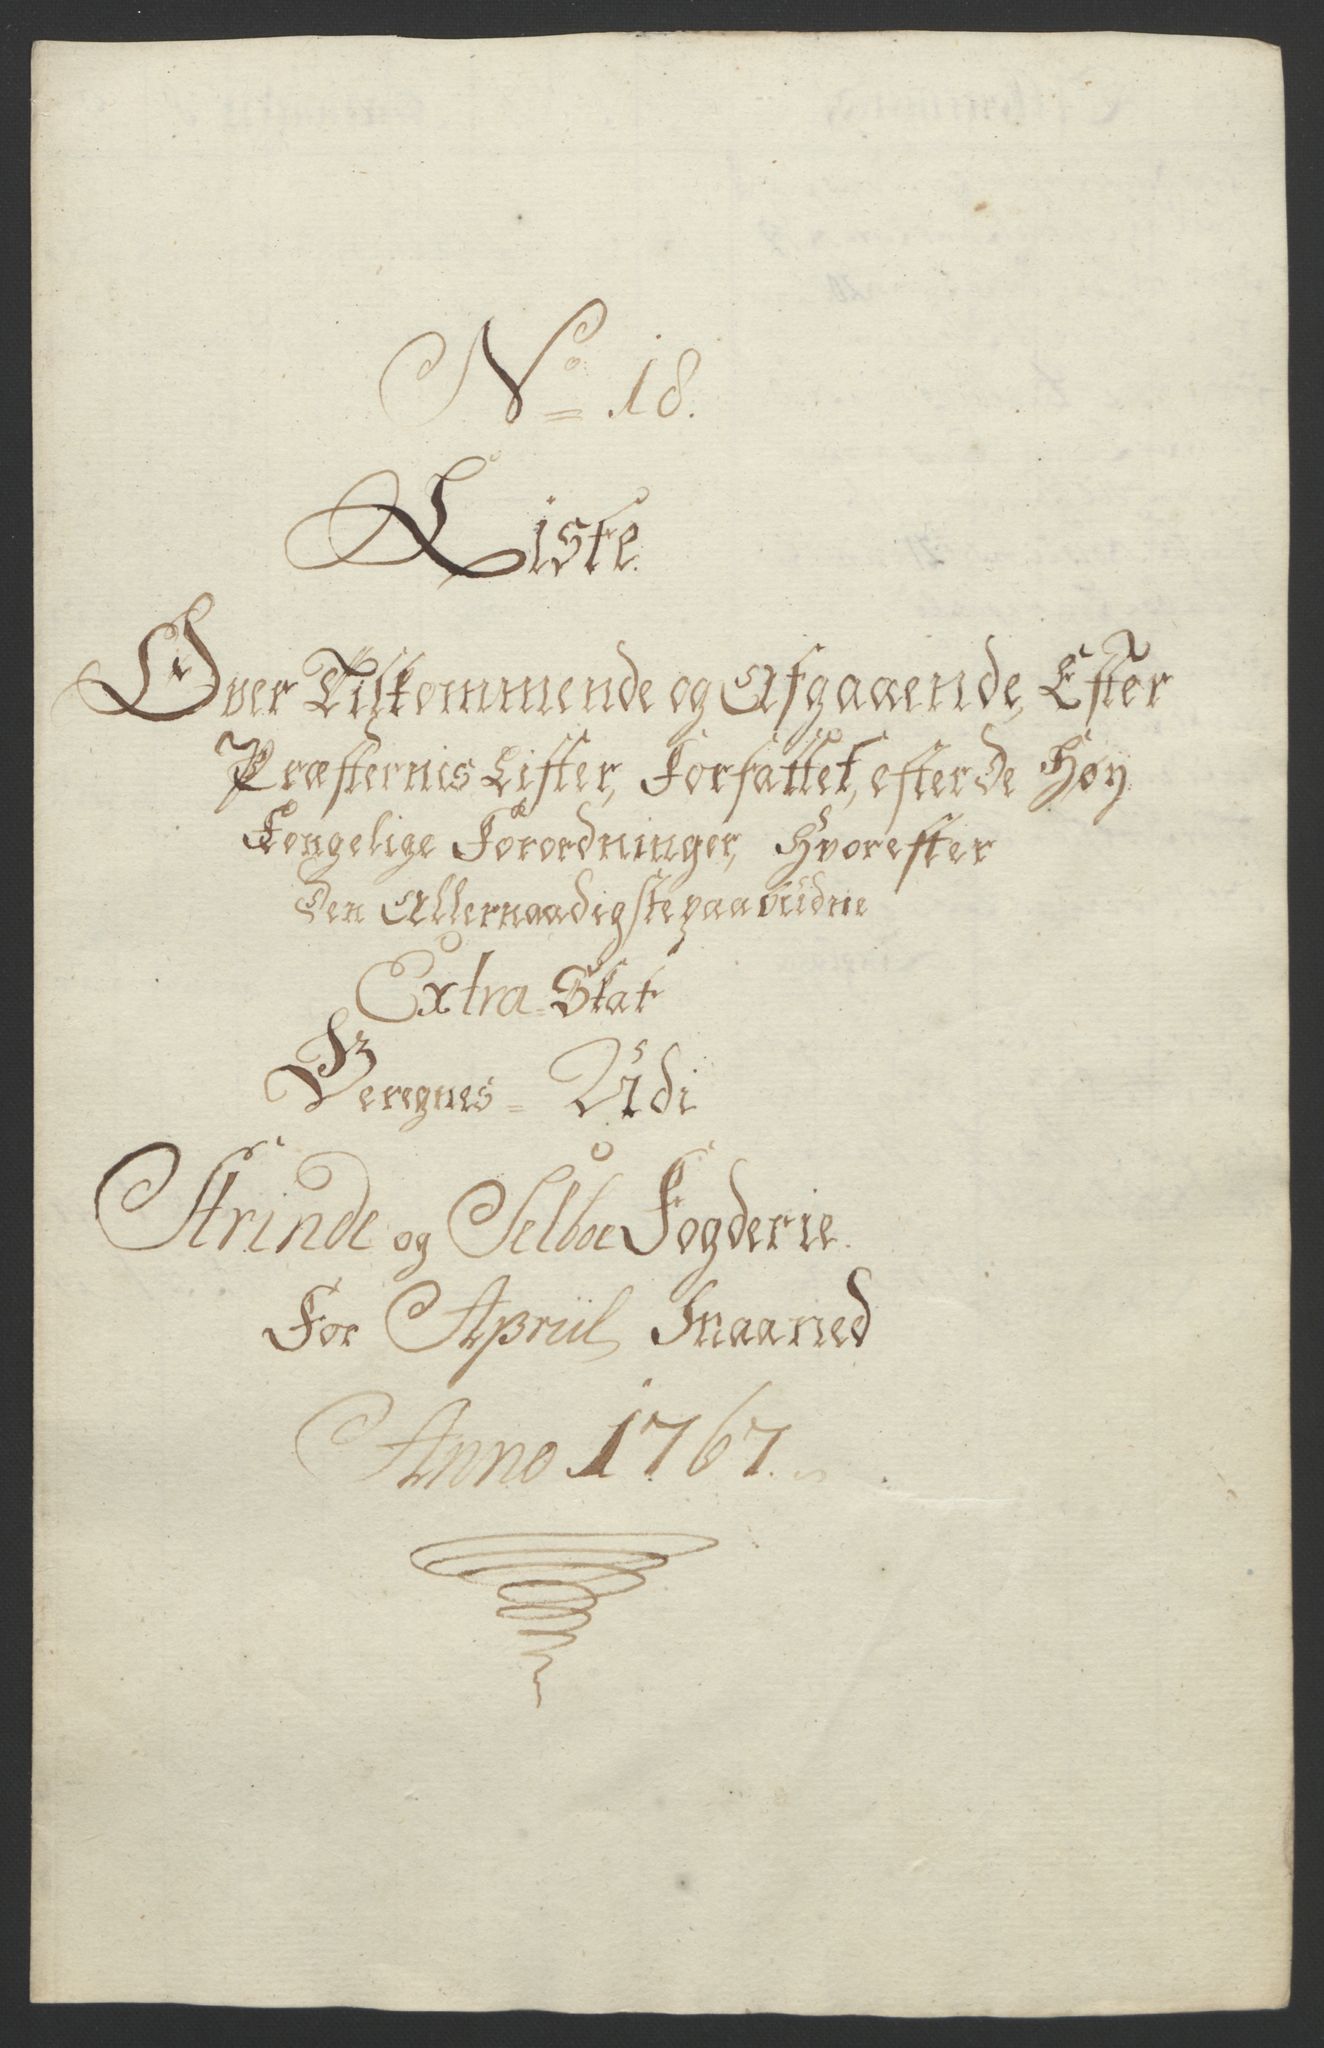 No 18.
Liste
Over Tilkommende og Afgaaende, Efter
Præsternis Lister, Forfattet, efter de Høy
Kongelige Forordninger, Hvorefter
den Allernaadigste paabudne
Extra-Skat
Beregnes = Udi
Strinde og Selboe Fogderie
For Apriil Maaned
Anno 1767.